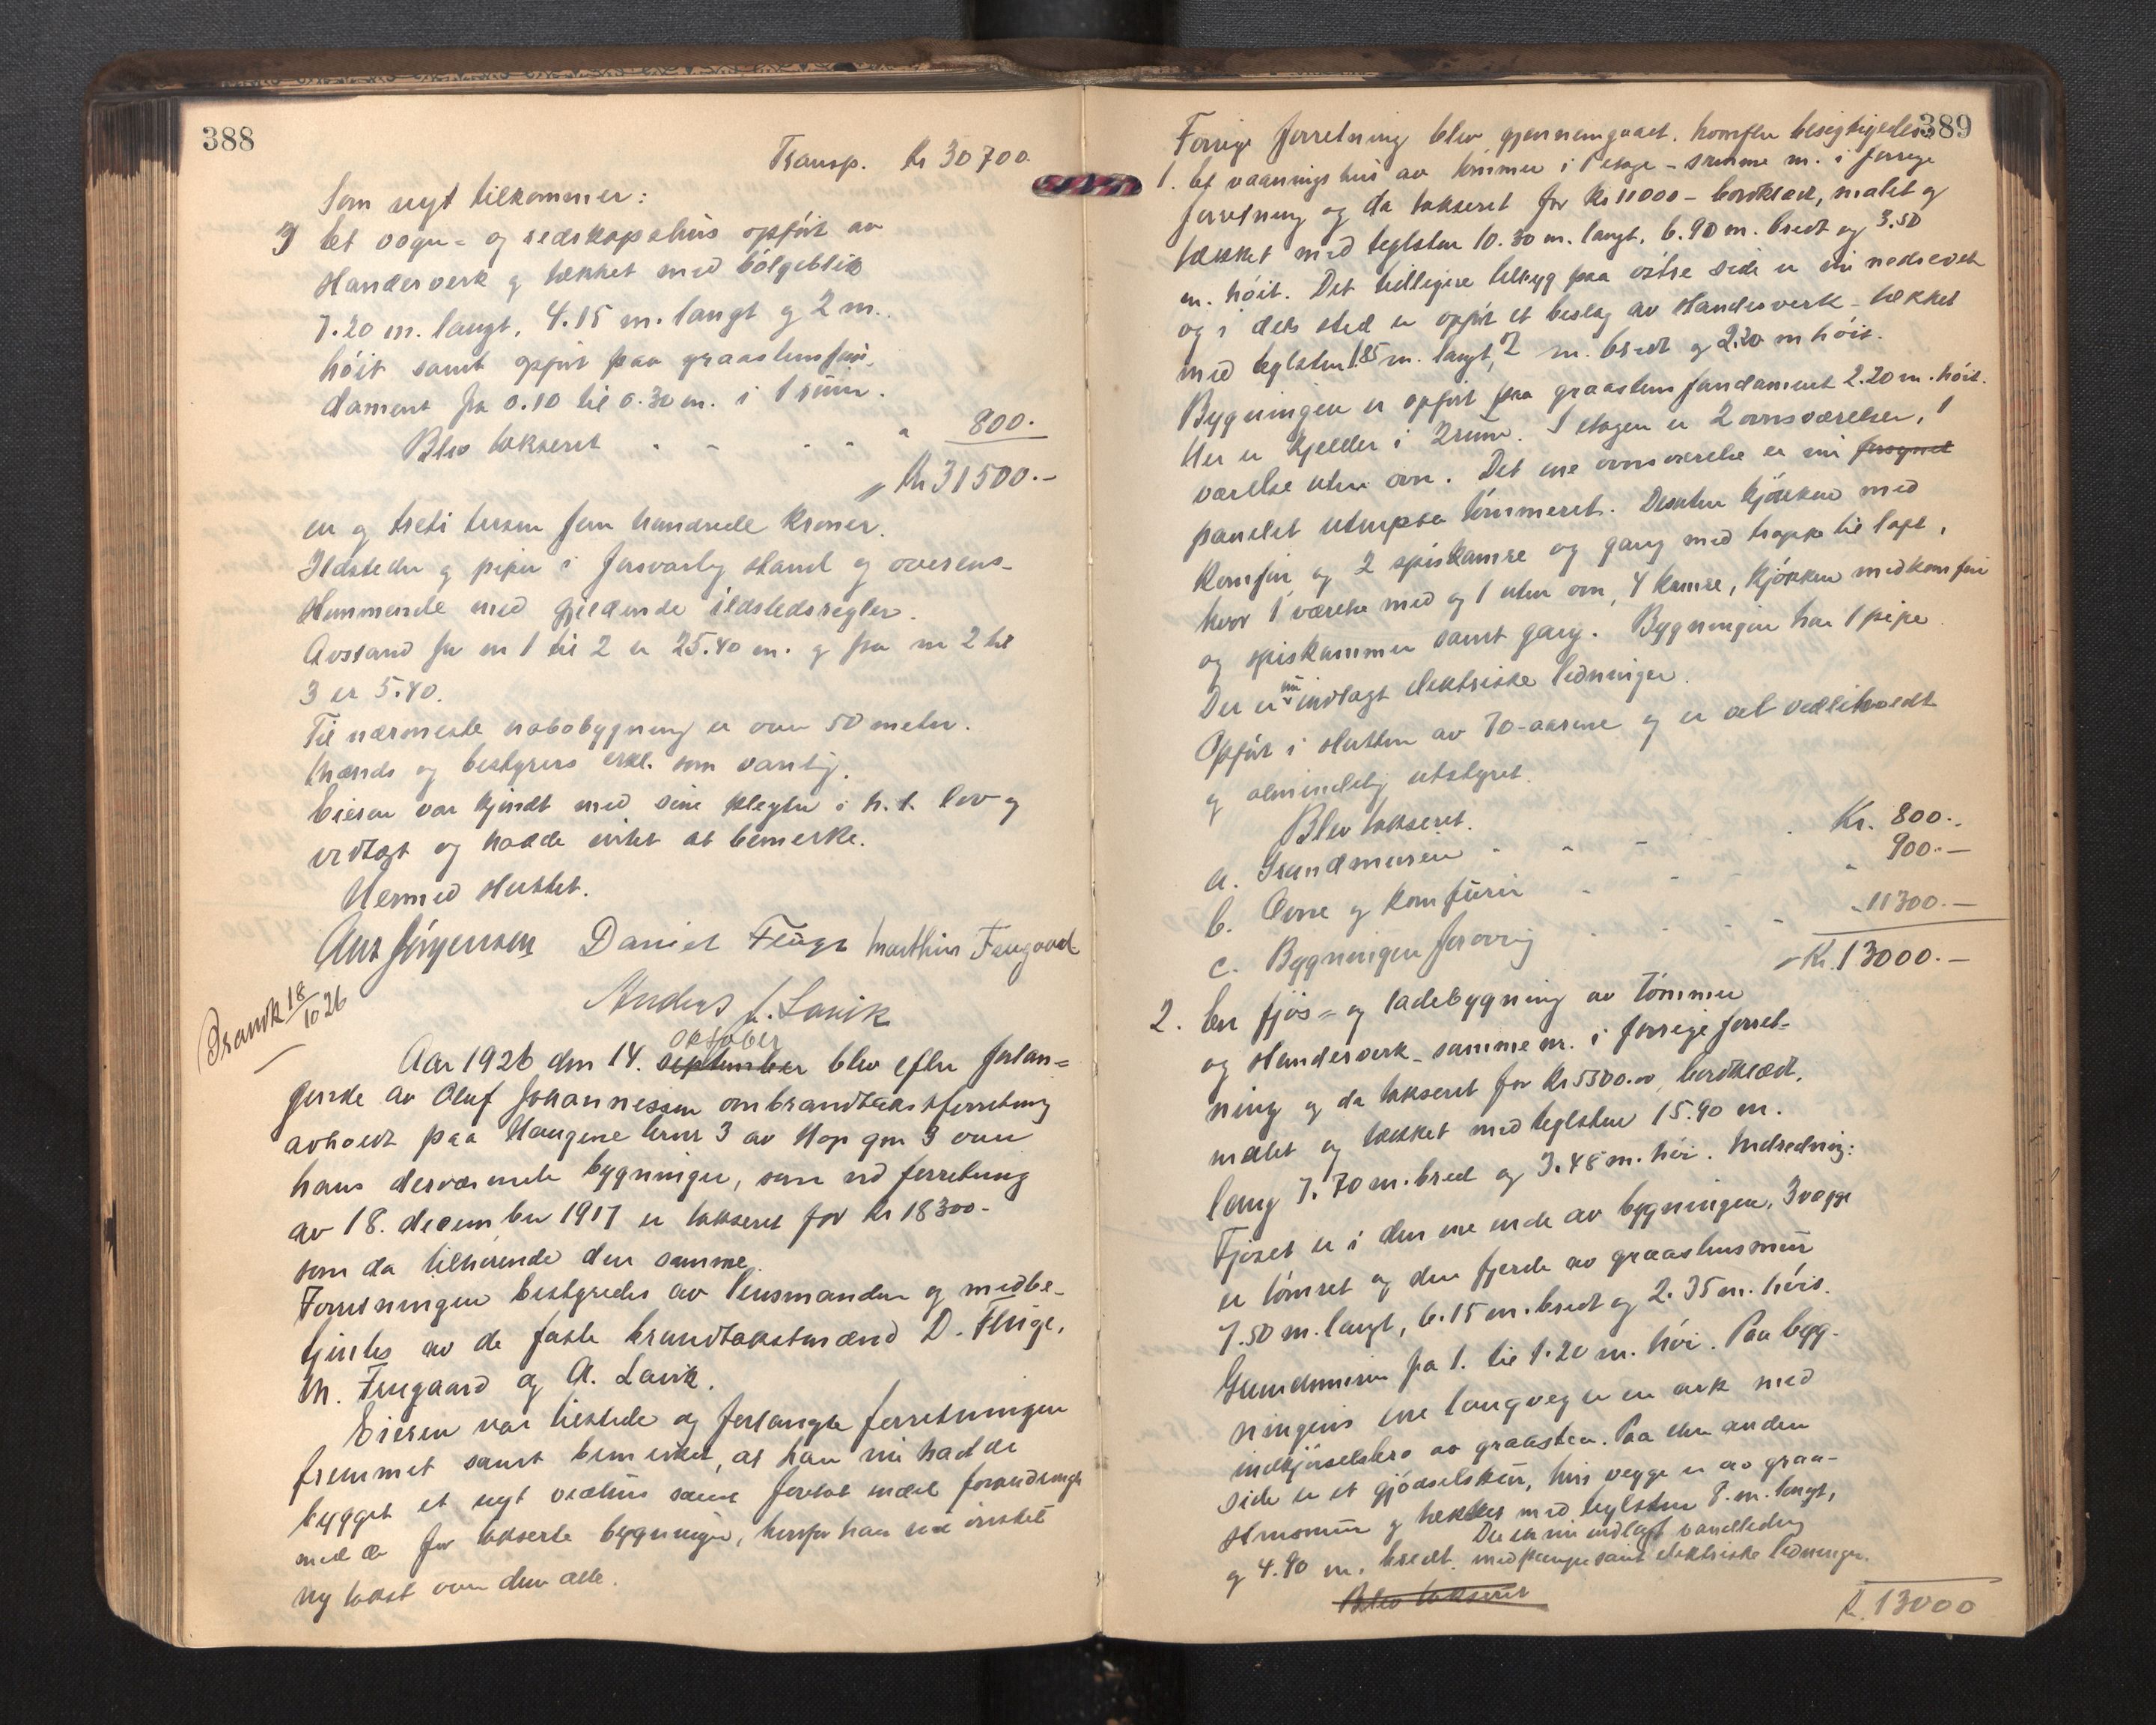 388
Transp. Kr 30700.
Som nyt tilkommer:
3 Et vogn- og redskapshus opført av
standerverk og tækket med bølgeblik
7.20 m. langt, 4.15 m. langt og 2 m.
høit samt opført paa graastensfun-
dament fra 0.10 til 0.30 m. i 1 rum.
Blev takseret - - - - " 800.-
Kr 31500.-
en og treti tusen fem hundrede kroner.
Ildsteder og piper i forsvarlig stand og overens-
stemmende med gjeldende ildstedsregler.
Avstand fra nr 1 til 2 er 25.40 m. og fra nr 2 til
3 er 5.40.
Til nærmeste nabobygning er over 50 meter.
Mænds og bestyrers erkl. som vanlig.
Eieren var kjendt med sine plegter i h. t. lov og
vedtægt og hadde intet at bemerke.
Hermed sluttet.
Ans Jørgensen Daniel Fluge Marthin Fengaard
Anders J. Lavik
Pranvk 18/10 26
oktober
Aar 1926 den 14. september blev efter forlan-
gende av Oluf Johannessen ombrandtakstforretning
avholdt paa Haugene brnr 3 av Hop gnr 3 over
hans derværende bygninger, som ved forretning
av 18. december 1917 er takseret for kr 18300.-
som da tilhørende den samme.
Forretningen bestyredes av lensmanden og medbe-
tjentes av de faste brandtakstmænd D. Fluge,
M. Fengaard og A. Lavik.
Eieren var tilstede og forlangte forretningen
fremmet samt bemerket, at han nu hadde
bygget et nyt vedhus samt foretat endel forandringer
med de før takserte bygninger, hvorfor han nu ønsket
ny takst over dem alle.
389
Forrige forretning blev gjennemgaaet, hvorefter besigtigedes:
1. Et vaaningshus av tømmer i 1 etage - samme nr. i forrige
forretning og da takseret for kr 11000 - bordklædt, malet og
tækket med teglsten 10.30 m. langt, 6.90 m. bredt og 3.50
m. høit. Det tidligere tilbygg paa østre side er nu nedrevet
og i dets sted er opført et beslag av standerverk - tækket
med teglsten 1.85 m. langt, 2 m. bredt og 2.20 m høit.
Bygningen er opført paa graastens fundament 2.20 m. høit.
Her er kjelder i 2 rum. I etagen er 2 ovnsværelser, 1
værelse uten ovn. Det ene ovnsværelse er nu forsynet
panelet utenpaa tømmeret. Desuten kjøkken med
komfur, og 2 spiskamre og gang med trappe til loft,
hvor 1 værelse med og 1 uten ovn, 4 kamre, kjøkken med komfur
og spiskammer samt gang. Bygningen har 1 pipe
Der er nu indlagt elektriske ledninger.
Opført i slutten av 70-aarene og er vel vedlikeholdt
og almindelig utstyret.
Blev takseret.
a. Grundmuren - - - - Kr. 800.-
b. Ovne og komfurer - - - - " 900.-
c. Bygningen forøvrig - - - - " 11300.-
Kr. 13000.-
2. En fjøs- og ladebygning av tømmer
og standerverk - samme nr. i forrige forret-
ning og da takseret for kr 5300.00, bordklædt,
malet og tækket med teglsten 15.90 m.
lang 7.70 m. bred og 3.48 m. høi. Indredning:
Fjøset er i den ene ende av bygningen, 3 vægge
er tømret og den fjerde av graastensmur
7.50 m. langt, 6.15 m. bredt og 2.35 m. høit.
Grundmuren fra 1. til 1.20 m. høi. Paa byg-
ningens ene langveg er en ark med
indkjørselsbro av graasten. Paa den anden
side er et gjødselskur, hvis vegge er av graa-
stensmur og tækket med teglsten 8. m. langt,
og 4.90 m. bredt. Der er nu indlagt vandledning
med pumpe samt elektriske ledninger.
Blev takseret
K. 13000